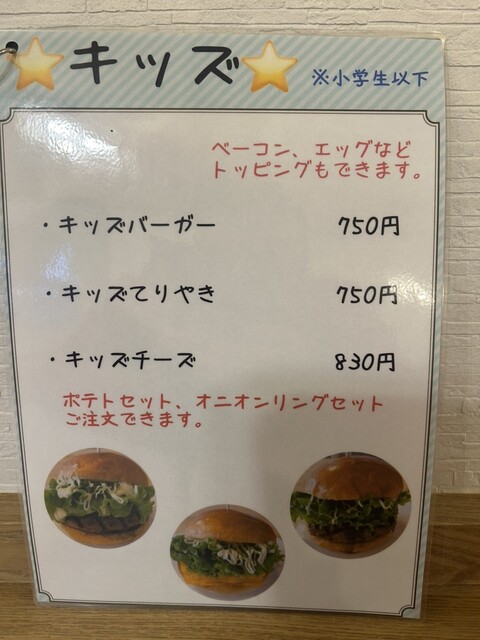 ⭐キッズ⭐ ※小学生以下
ベーコン、エッグなど
トッピングもできます。
・キッズバーガー 750円
・キッズてりやき 750円
・キッズチーズ 830円
ポテトセット、オニオンリングセット
ご注文できます。